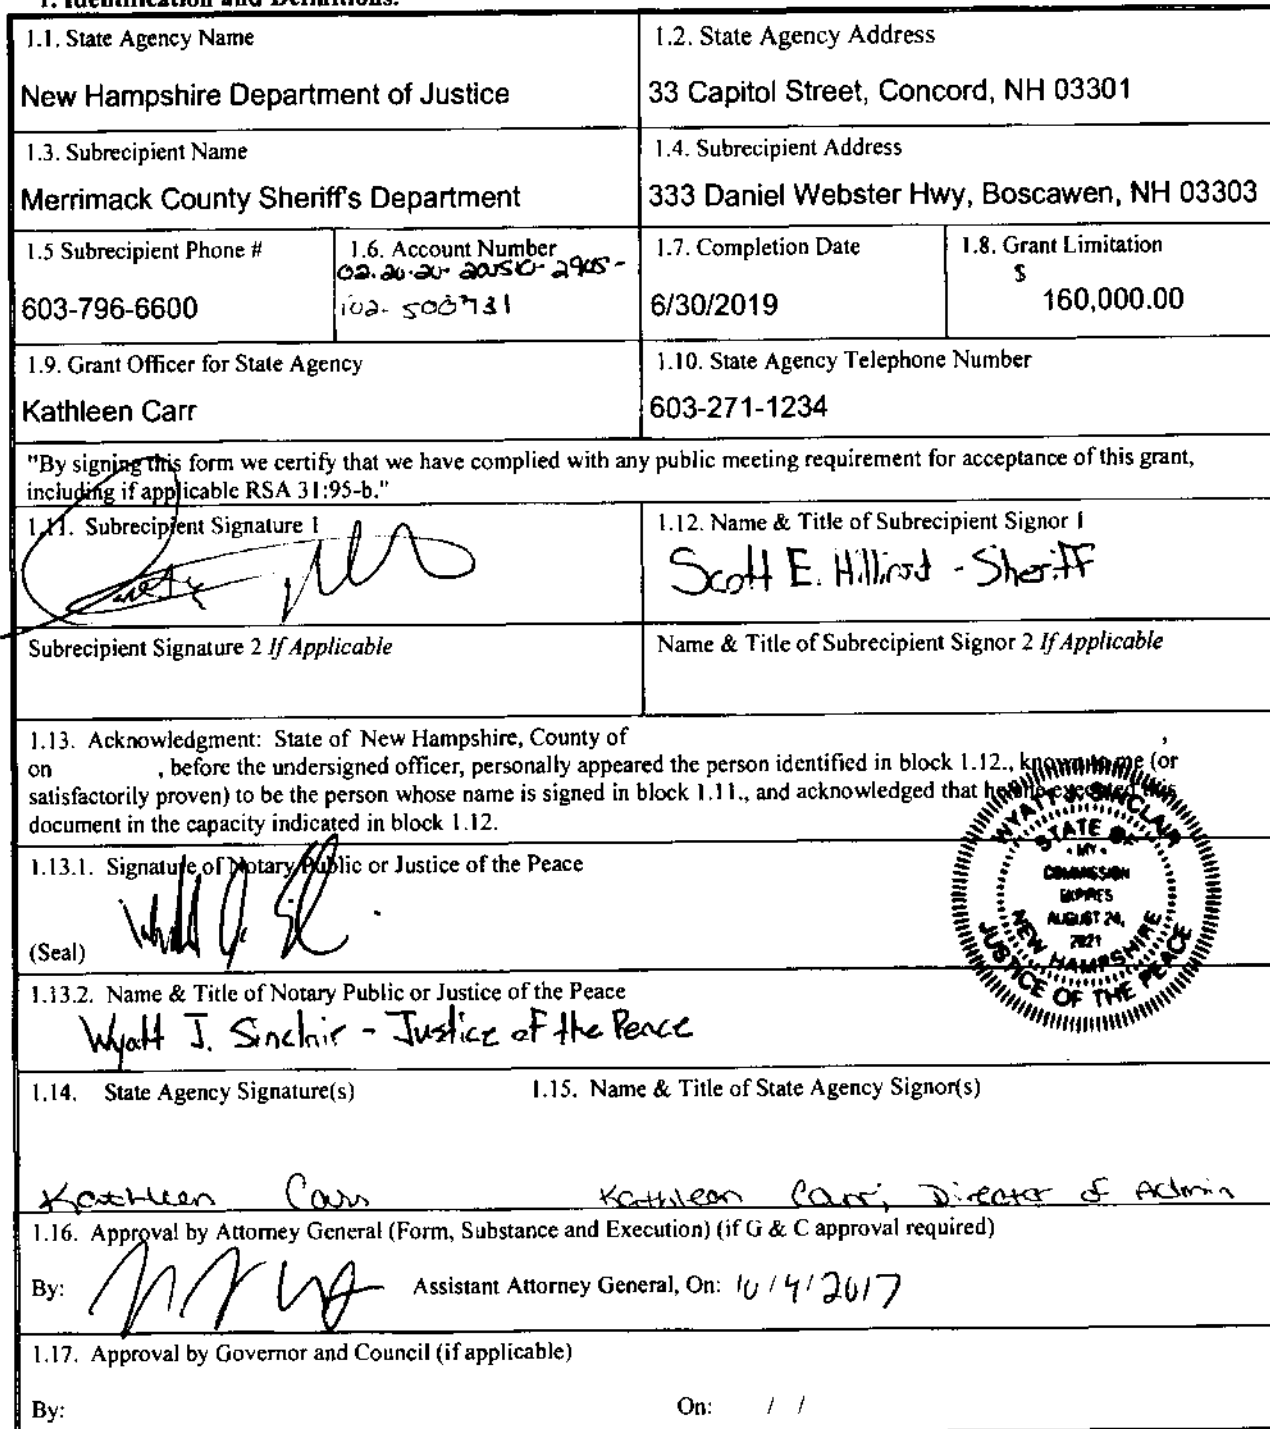 1. Identification and Definitions.
1.1. State Agency Name
New Hampshire Department of Justice
1.2. State Agency Address
33 Capitol Street, Concord, NH 03301
1.3. Subrecipient Name
Merrimack County Sheriff's Department
1.4. Subrecipient Address
333 Daniel Webster Hwy, Boscawen, NH 03303
1.5 Subrecipient Phone #
603-796-6600
1.6. Account Number
102-500731
1.7. Completion Date
6/30/2019
1.8. Grant Limitation
$
160,000.00
1.9. Grant Officer for State Agency
Kathleen Carr
1.10. State Agency Telephone Number
603-271-1234
"By signing this form we certify that we have complied with any public meeting requirement for acceptance of this grant,
including if applicable RSA 31:95-b."
1.11. Subrecipient Signature 1
1.12. Name & Title of Subrecipient Signor 1
Scott E. Hilliard - Sheriff
Subrecipient Signature 2 If Applicable
Name & Title of Subrecipient Signor 2 If Applicable
1.13. Acknowledgment: State of New Hampshire, County of ,
on , before the undersigned officer, personally appeared the person identified in block 1.12., known to me (or
satisfactorily proven) to be the person whose name is signed in block 1.11., and acknowledged that he/she executed this
document in the capacity indicated in block 1.12.
1.13.1. Signature of Notary Public or Justice of the Peace
(Seal)
WYATT J. SINCLAIR
STATE OF
• MY •
COMMISSION
EXPIRES
AUGUST 24,
2021
NEW HAMPSHIRE
JUSTICE OF THE PEACE
1.13.2. Name & Title of Notary Public or Justice of the Peace
Wyatt J. Sinclair - Justice of the Peace
1.14. State Agency Signature(s)
1.15. Name & Title of State Agency Signor(s)
Kathleen Carr
Kathleen Carr, Director of Admin
1.16. Approval by Attorney General (Form, Substance and Execution) (if G & C approval required)
By: Assistant Attorney General, On: 10/4/2017
1.17. Approval by Governor and Council (if applicable)
By: On: / /